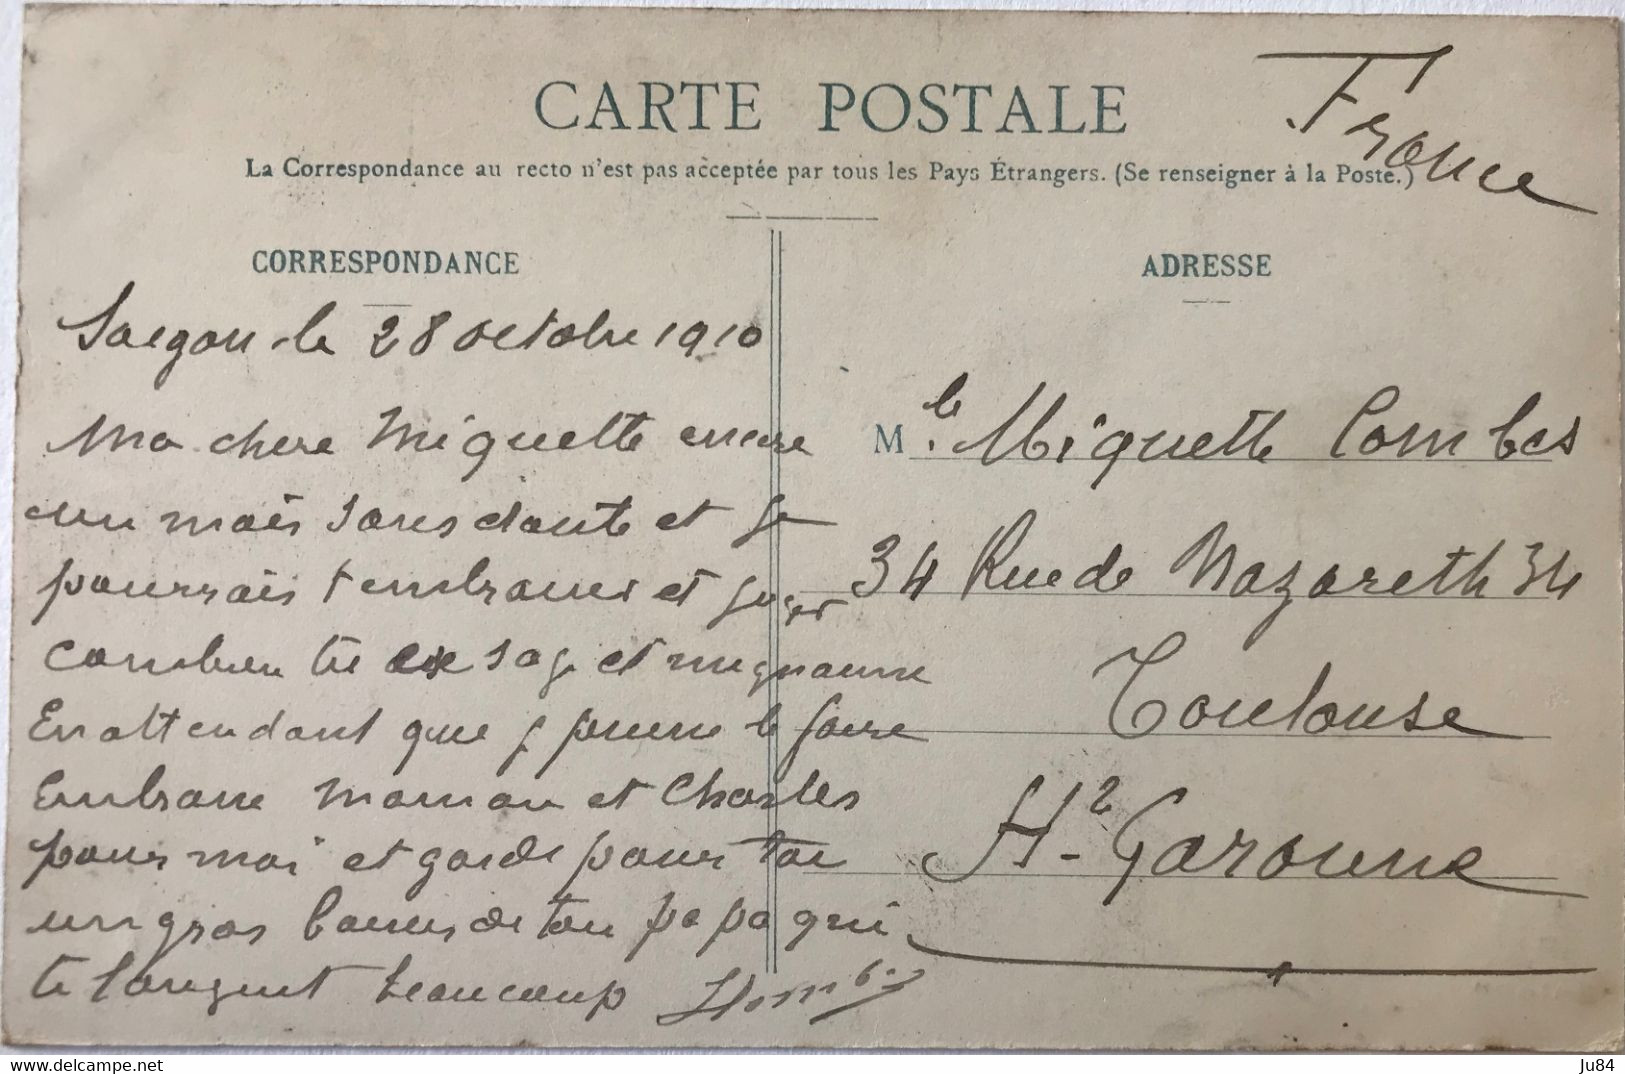 CARTE POSTALE
France
La Correspondance au recto n'est pas acceptée par tous les Pays Étrangers. (Se renseigner à la Poste.)
CORRESPONDANCE
Saigon le 28 octobre 1910
Ma chere Miguette encore
un mois sans doute et je
pourrais t embrasser et juger
combien tu es sage et mignonne
En attendant que j puisse le faire
Embrasse maman et Charles
pour moi et garde pour toi
un gros baiser de ton papa qui
te beaucoup
ADRESSE
M.le Miguette Combes
34 Rue de Nazareth 34
Toulouse
Hte Garonne
delcampe.net
Ju84